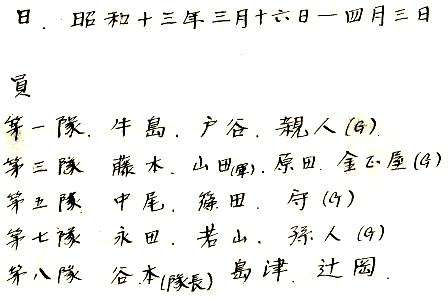 日. 昭和十三年三月十六日－四月三日
員
第一隊. 牛島. 戸谷. 親人(G)
第三隊 藤木. 山田(軍). 原田. 金正屋(G)
第五隊 中尾. 篠田. 守(G)
第七隊 永田. 若山. 孫人(G)
第八隊 谷本(隊長) 島津. 辻岡.